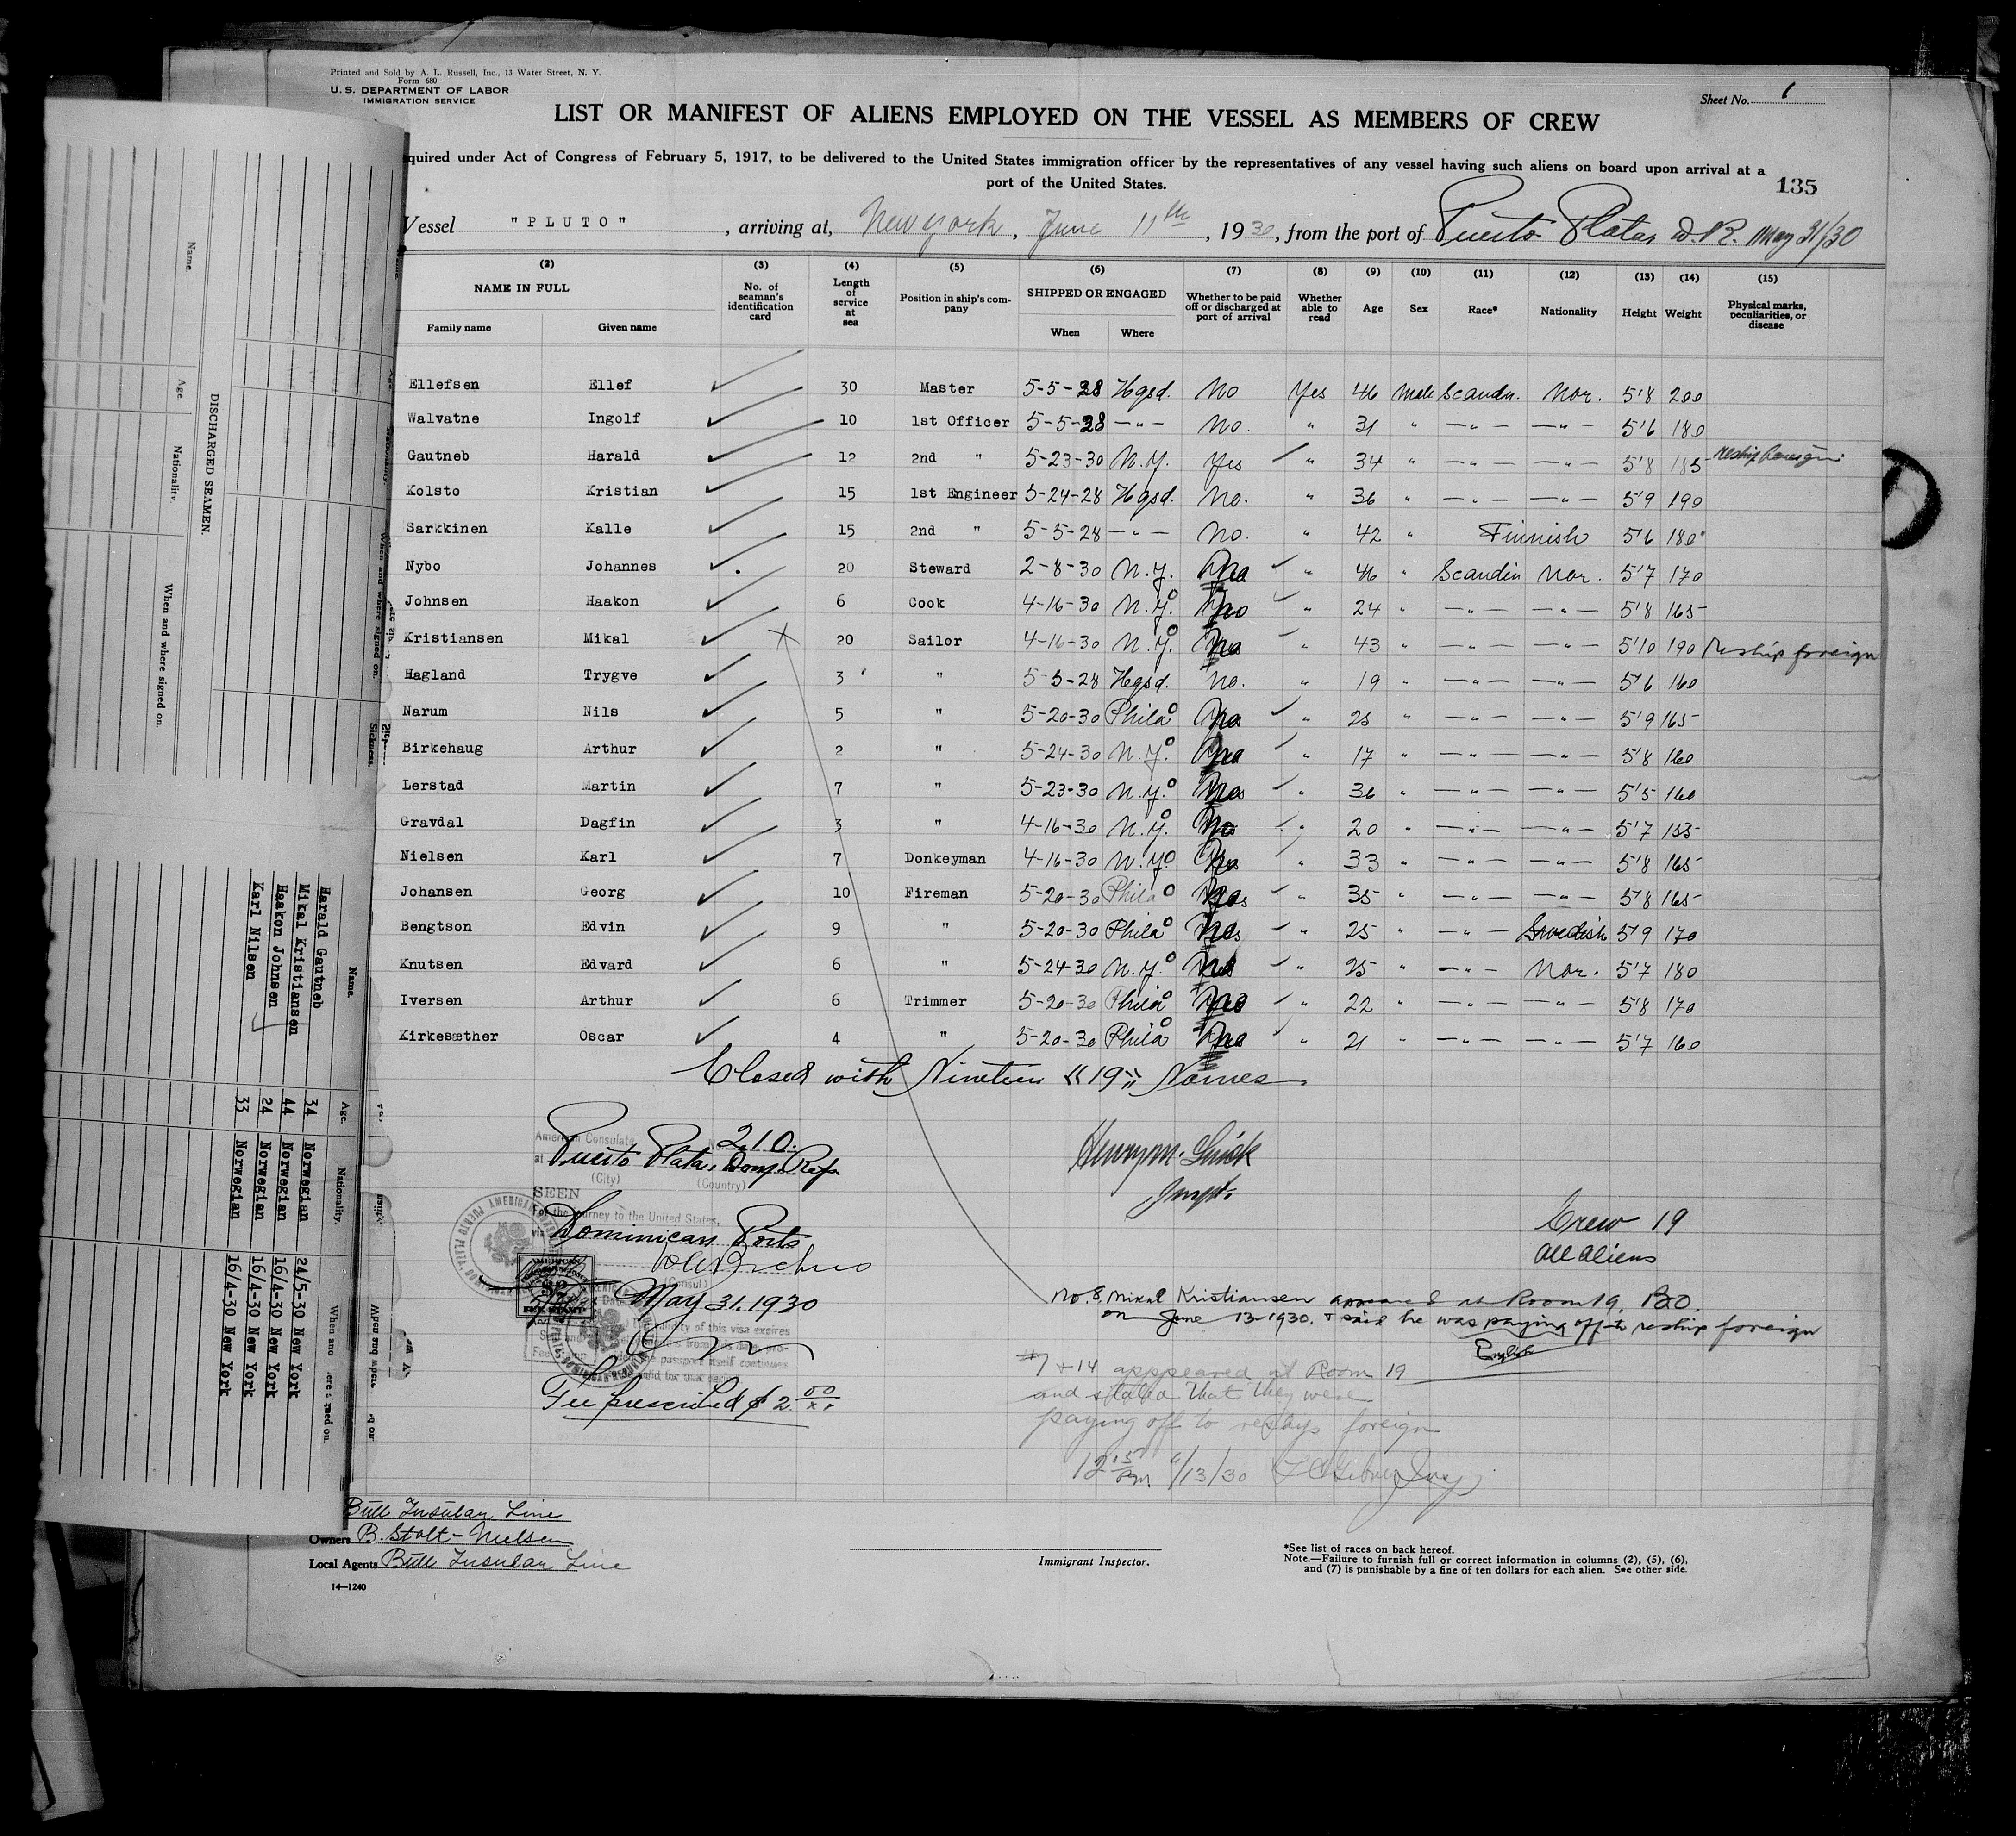 Printed and Sold by A. L. Russell, Inc., 13 Water Street, N. Y.
Form 680
U. S. DEPARTMENT OF LABOR
IMMIGRATION SERVICE
Sheet No. 1
LIST OR MANIFEST OF ALIENS EMPLOYED ON THE VESSEL AS MEMBERS OF CREW
quired under Act of Congress of February 5, 1917, to be delivered to the United States immigration officer by the representatives of any vessel having such aliens on board upon arrival at a
port of the United States.
135
Vessel "PLUTO", arriving at, New York, June 11th, 1930, from the port of Puerto Plata, D.R. May 31/30
(2) (3) (4) (5) (6) (7) (8) (9) (10) (11) (12) (13) (14) (15)
NAME IN FULL No. of seaman's identification card Length of service at sea Position in ship's company SHIPPED OR ENGAGED Whether to be paid off or discharged at port of arrival Whether able to read Age Sex Race* Nationality Height Weight Physical marks, peculiarities, or disease
Family name Given name When Where
Ellefsen Ellef 30 Master 5-5-28 Hgsd. No Yes 46 Male Scandn. Nor. 5'8 200
Walvatne Ingolf 10 1st Officer 5-5-28 —"— No. " 31 " —"— —"— 5'6 180
Gautneb Harald 12 2nd " 5-23-30 N.Y. Yes " 34 " —"— —"— 5'8 185 reship foreign
Kolsto Kristian 15 1st Engineer 5-24-28 Hgsd. No. " 36 " —"— —"— 5'9 190
Sarkkinen Kalle 15 2nd " 5-5-28 —"— No. " 42 " Finnish 5'6 180
Nybo Johannes 20 Steward 2-8-30 N.Y. No " 46 " Scandin Nor. 5'7 170
Johnsen Haakon 6 Cook 4-16-30 N.Y. No " 24 " —"— —"— 5'8 165
Kristiansen Mikal 20 Sailor 4-16-30 N.Y. No " 43 " —"— —"— 5'10 190 Reship foreign
Hagland Trygve 3 " 5-5-28 Hgsd. No. " 19 " —"— —"— 5'6 160
Narum Nils 5 " 5-20-30 Phila No " 25 " —"— —"— 5'9 165
Birkehaug Arthur 2 " 5-24-30 N.Y. No " 17 " —"— —"— 5'8 160
Lerstad Martin 7 " 5-23-30 N.Y. No " 36 " —"— —"— 5'5 160
Gravdal Dagfin 3 " 4-16-30 N.Y. No " 20 " —"— —"— 5'7 155
Nielsen Karl 7 Donkeyman 4-16-30 N.Y. No " 33 " —"— —"— 5'8 165
Johansen Georg 10 Fireman 5-20-30 Phila No " 35 " —"— —"— 5'8 165
Bengtson Edvin 9 " 5-20-30 Phila No " 25 " —"— Swedish 5'9 170
Knutsen Edvard 6 " 5-24-30 N.Y. No " 25 " —"— Nor. 5'7 180
Iversen Arthur 6 Trimmer 5-20-30 Phila No " 22 " —"— —"— 5'8 170
Kirkesæther Oscar 4 " 5-20-30 Phila No " 21 " —"— —"— 5'7 160
Closed with Nineteen "19" Names
American Consulate No. 210.
at Puerto Plata, Dom. Rep.
(City) (Country)
SEEN
For the journey to the United States,
via Dominican Ports
(Consul)
May 31. 1930
validity of this visa expires
Fee prescribed $2.00
Crew 19
all aliens
No. 8. Mikal Kristiansen appeared at Room 19, B.O.
on June 13-1930. & said he was paying off to reship foreign
English
#7 + 14 appeared at Room 19
and stated that they were
paying off to reship foreign
12 15 PM 6/13/30
Bull Insular Line
Owners B. Stolt-Nielsen
Local Agents Bull Insular Line
14—1240
Immigrant Inspector.
*See list of races on back hereof.
Note.—Failure to furnish full or correct information in columns (2), (5), (6),
and (7) is punishable by a fine of ten dollars for each alien. See other side.
DISCHARGED SEAMEN.
Name. Age. Nationality. When and where signed on.
Name. Age. Nationality.
Harald Gautneb 34 Norwegian 24/5-30 New York
Mikal Kristiansen 44 Norwegian 16/4-30 New York
Haakon Johnsen 24 Norwegian 16/4-30 New York
Karl Nilsen 33 Norwegian 16/4-30 New York